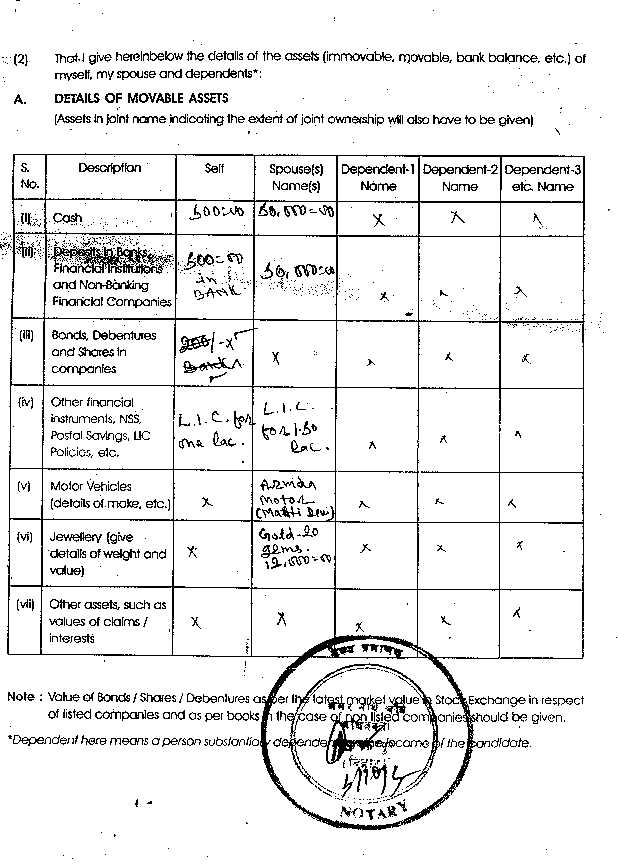 (2) That I give hereinbelow the details of the assets (immovable, movable, bank balance, etc.) of
myself, my spouse and dependents*:
A. DETAILS OF MOVABLE ASSETS
(Assets in joint name indicating the extent of joint ownership will also have to be given)
S. No. Description Self Spouse(s) Name(s) Dependent-1 Name Dependent-2 Name Dependent-3 etc. Name
(i) Cash 500=00 50,000=00 X X X
(ii) Deposits in Banks,
Financial Institutions
and Non-Banking
Financial Companies
500=00
in
BANK
50,000=00
X X X
(iii) Bonds, Debentures
and Shares in
companies
X X X X X
(iv) Other financial
instruments, NSS,
Postal Savings, LIC
Policies, etc.
L.I.C. for
one lac.
L.I.C.
for 1.50
lac.
X X X
(v) Motor Vehicles
(details of make, etc.)
X
Motor
X X X
(vi) Jewellery (give
details of weight and
value)
X
Gold-20
gems.
12,000=00
X X X
(vii) Other assets, such as
values of claims /
interests
X X X X X
Note : Value of Bonds / Shares / Debentures as per the latest market value in Stock Exchange in respect
of listed companies and as per books in the case of non listed companies should be given.
*Dependent here means a person substantially dependent income of the candidate.
NOTARY